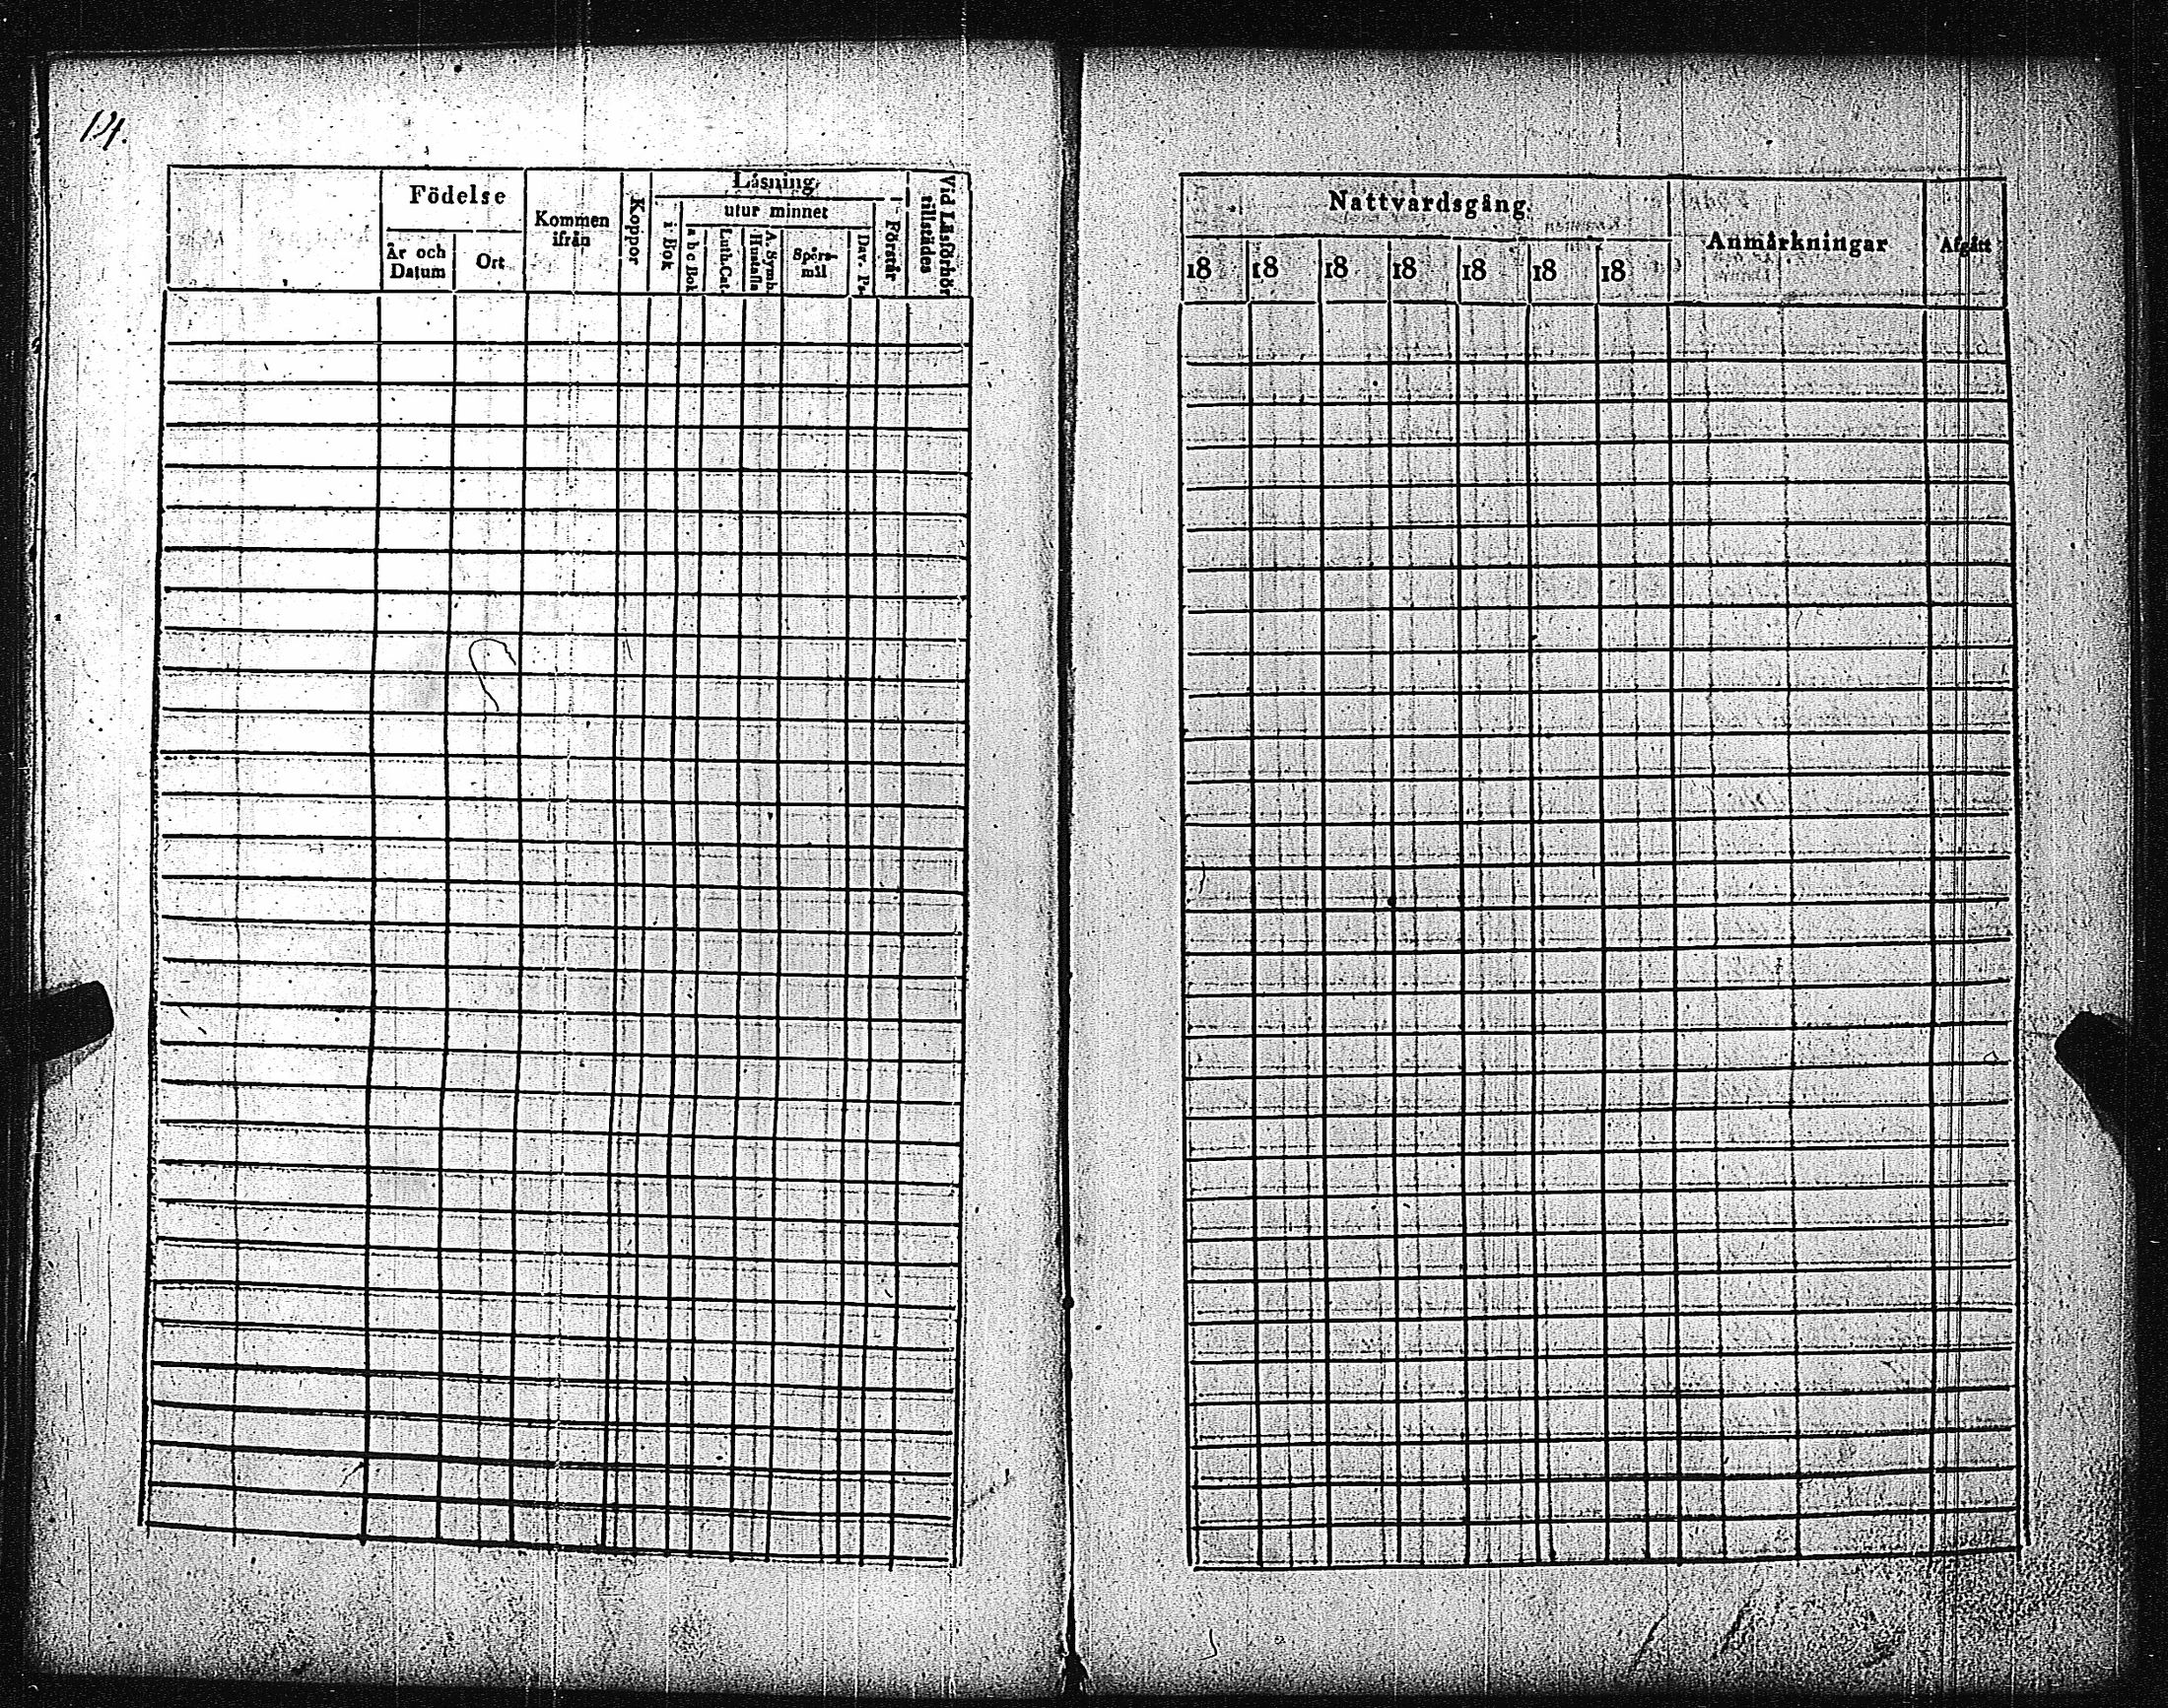 Födelse
År och Datum
Ort
Kommen ifrån
Koppor
Läsning
i Bok
utur minnet
a b c Bok
Luth. Cat.
A. Symb. Hustafla
Spörsmål
Dav. Ps.
Förstår
Vid Läsförhör tillstädes
Nattvardsgång.
18 18 18 18 18 18 18
Anmärkningar
Afgått